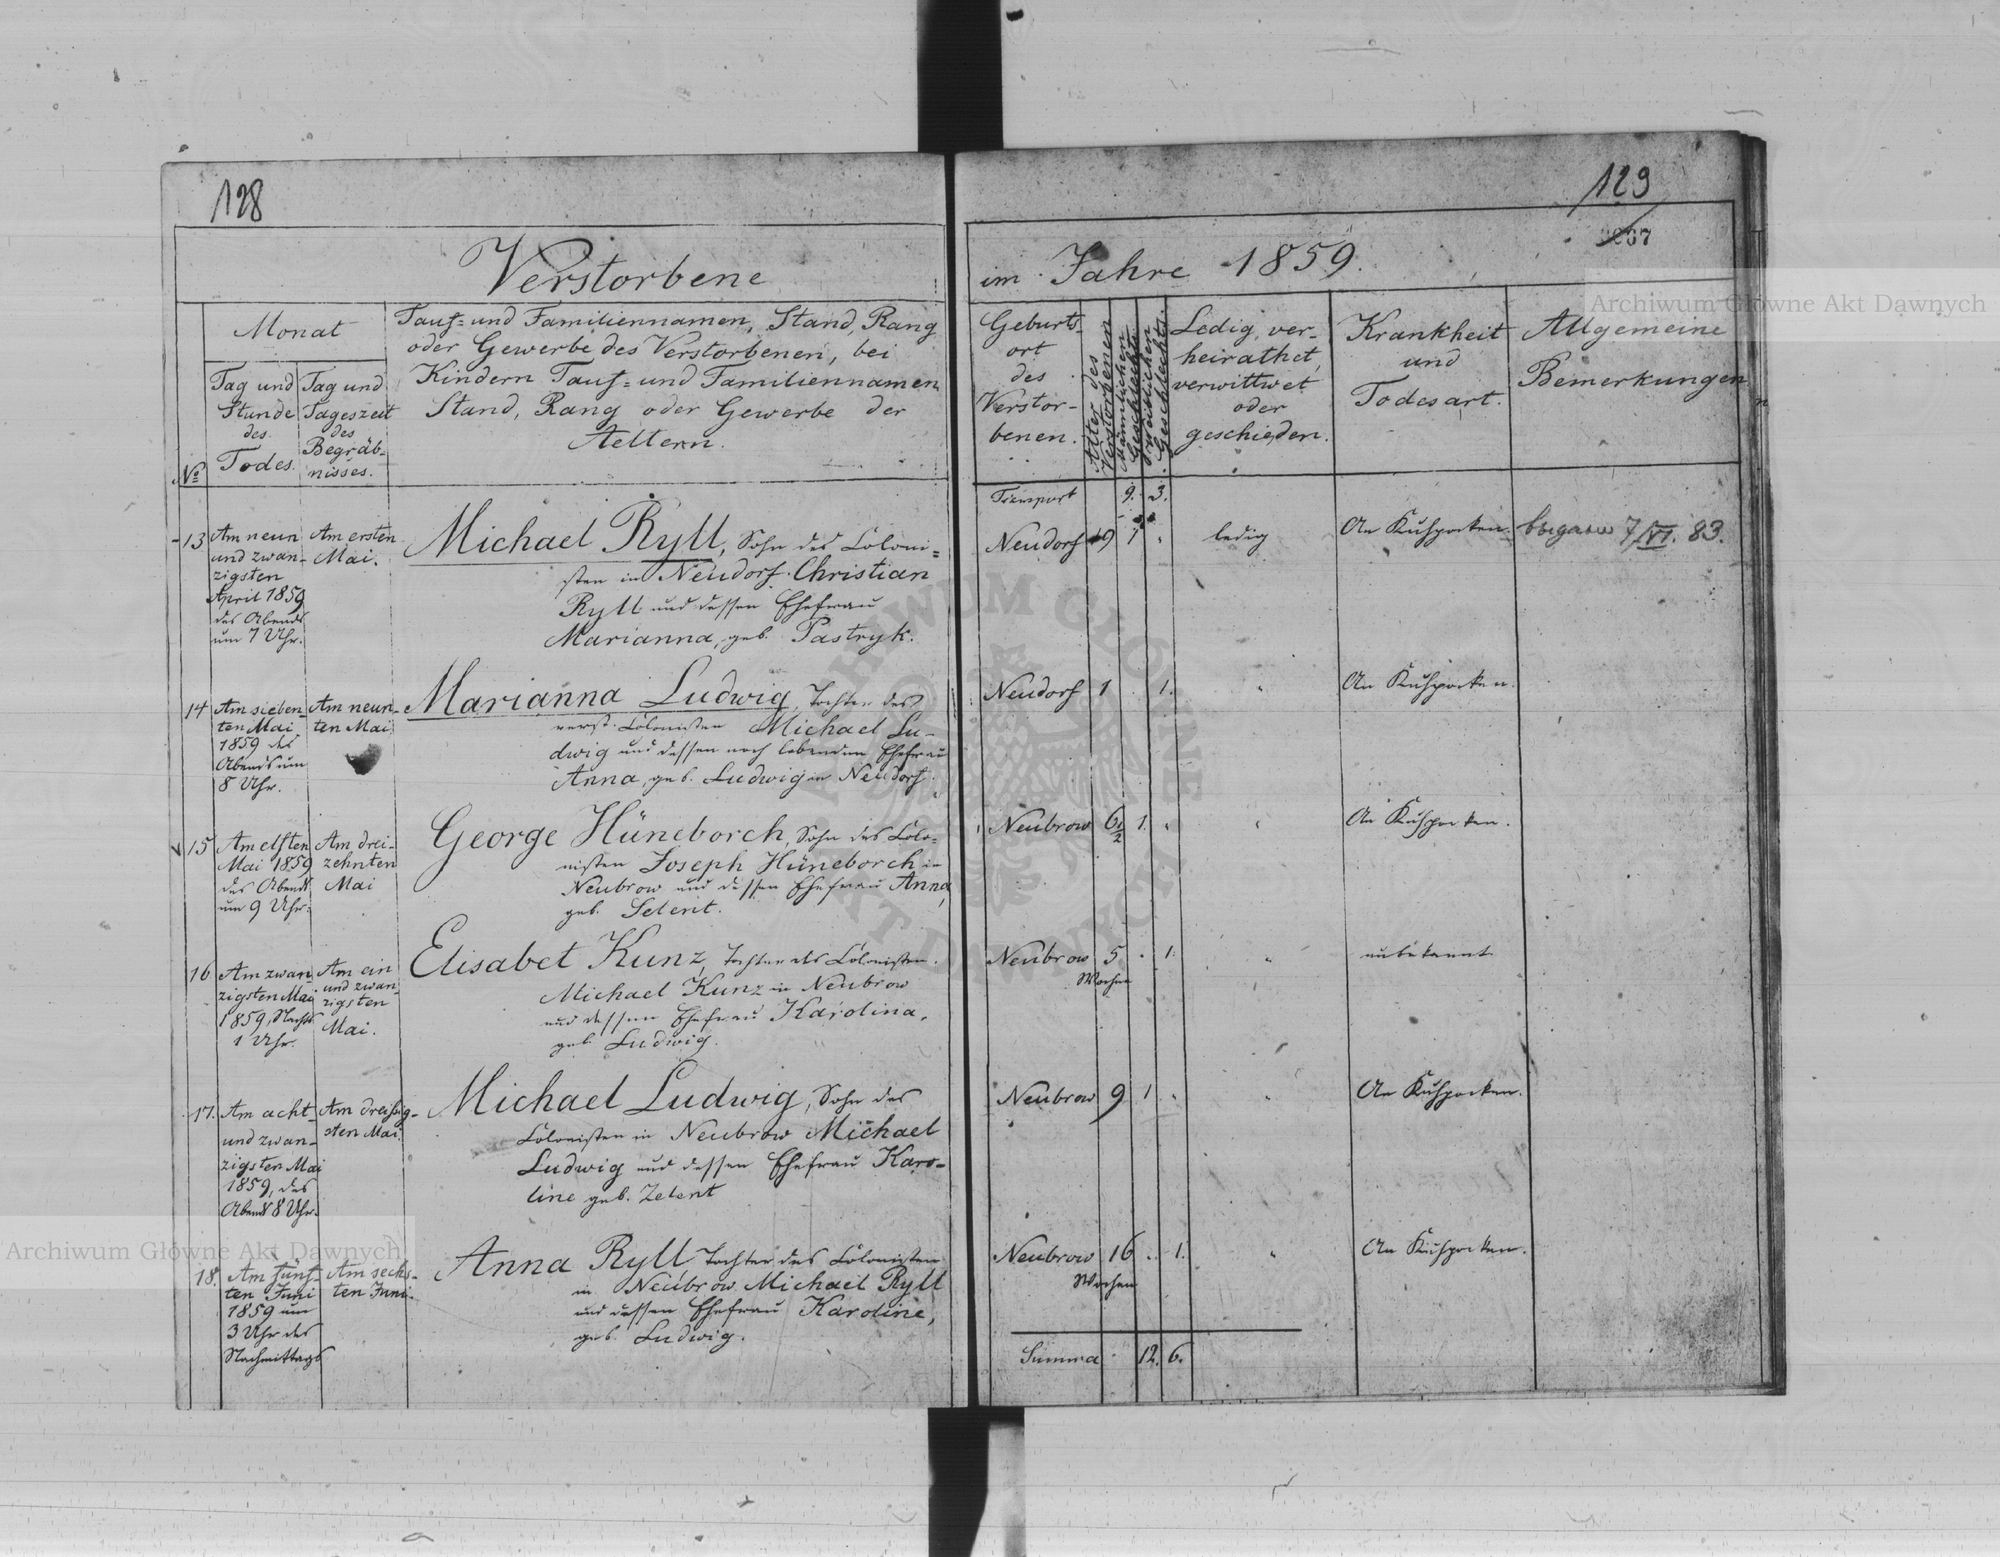 128
Verstorbene
Monat
Tag und
Stunde
des
Todes.
Tag und
Tageszeit
des
Begräb-
nisses.
No
Tauf- und Familiennamen, Stand, Rang
oder Gewerbe des Verstorbenen, bei
Kindern Tauf- und Familiennamen
Stand, Rang oder Gewerbe der
Aeltern.
13
Am neun
und zwan-
zigsten
April 1859
des Abends
um 7 Uhr.
Am ersten
Mai.
Michael Ryll, Sohn des Coloni-
sten in Neudorf Christian
Ryll und dessen Ehefrau
Marianna, geb. Pastryk.
14
Am sieben-
ten Mai
1859 des
Abends um
8 Uhr.
Am neun-
ten Mai
Marianna Ludwig, Tochter des
verst. Colonisten Michael Lu-
dwig und dessen noch lebenden Ehefrau
Anna, geb. Ludwig in Neudorf.
15
Am elften
Mai 1859
des Abends
um 9 Uhr.
Am drei-
zehnten
Mai
George Hüneborch, Sohn des Colo-
nisten Joseph Hüneborch in
Neubrow und dessen Ehefrau Anna,
geb. Selent.
16
Am zwan-
zigsten Mai
1859, Nachts
1 Uhr.
Am ein
und zwan-
zigsten
Mai.
Elisabet Kunz, Tochter des Colonisten
Michael Kunz in Neubrow
und dessen Ehefrau Karolina,
geb. Ludwig.
17.
Am acht
und zwan-
zigsten Mai
1859, des
Abends 8 Uhr.
Am dreißig-
sten Mai.
Michael Ludwig, Sohn des
Colonisten in Neubrow Michael
Ludwig und dessen Ehefrau Karo-
line geb. Zelent
18.
Am fünf-
ten Juni
1859 um
3 Uhr des
Nachmittags
Am sechs-
ten Juni.
Anna Ryll Tochter des Colonisten
in Neubrow Michael Ryll
und dessen Ehefrau Karoline,
geb. Ludwig.
129
im Jahre 1859.
Geburts-
ort
des
Verstor-
benen.
Alter des
Verstorbenen
Männlichen
Geschlechts
Weiblichen
Geschlechts.
Ledig, ver-
heirathet,
verwittwet
oder
geschieden.
Krankheit
und
Todesart.
Allgemeine
Bemerkungen
Transport 9. 3.
Neudorf 19 1 " ledig An Kuhpocken. 7/VI. 83.
Neudorf 1 . 1. " An Kuhpocken.
Neubrow 6 1/2 1. " " An Kuhpocken.
Neubrow 5 . 1. " unbekannt
Wochen
Neubrow 9 1 " " An Kuhpocken.
Neubrow 16 . 1. " An Kuhpocken.
Wochen
Summa 12. 6.
Archiwum Główne Akt Dawnych
Archiwum Główne Akt Dawnych
ARCHIWUM GŁÓWNE AKT DAWNYCH